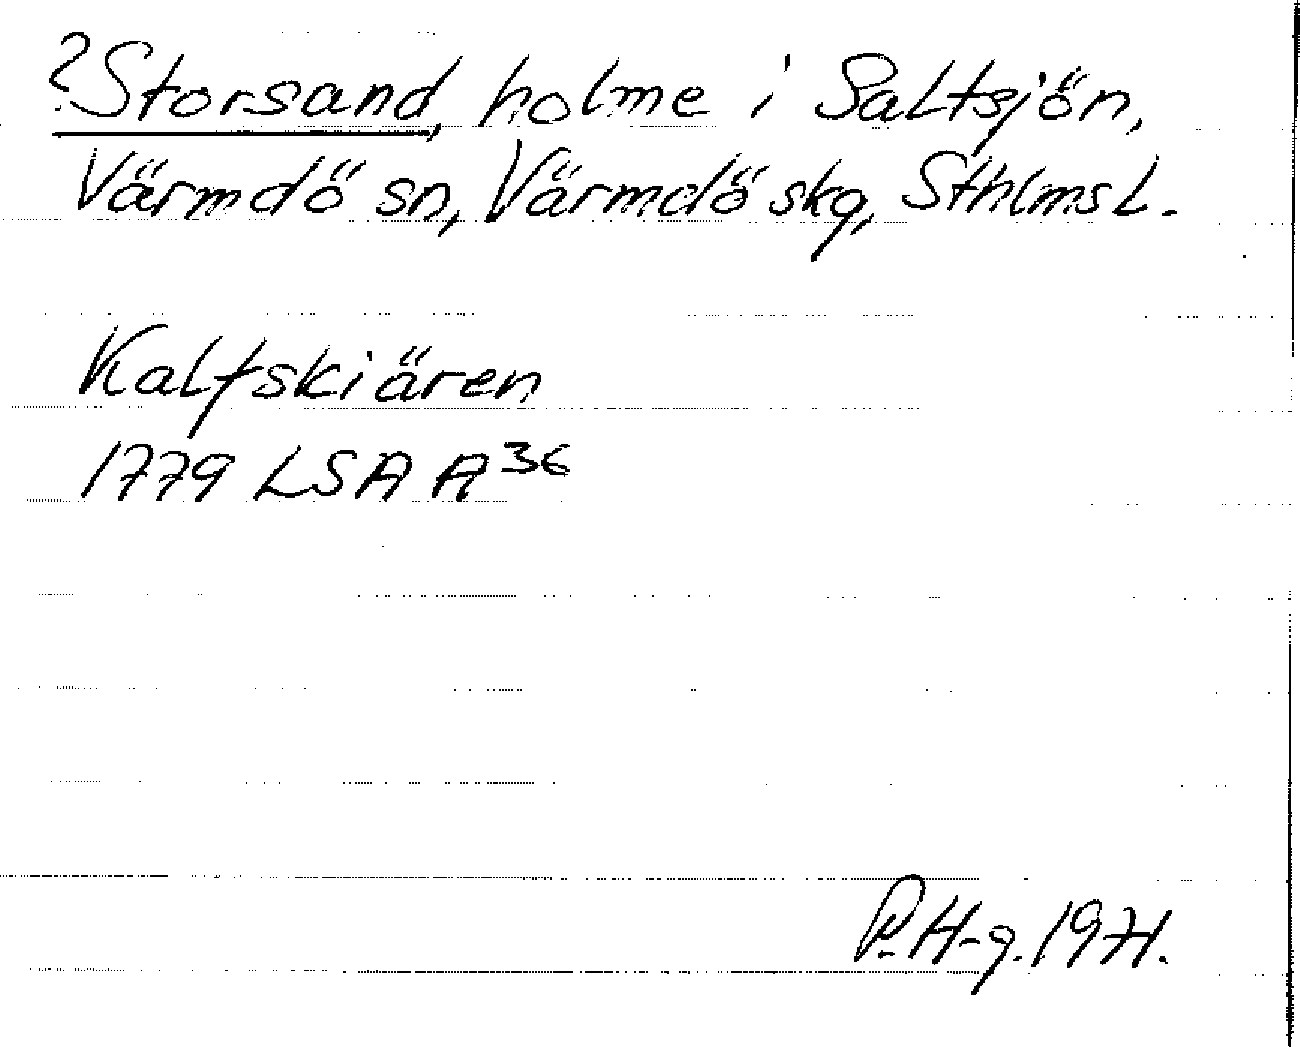 ?Storsand, holme i Saltsjön,
Värmdö sn, Värmdö skg, Sthlms L.
Kalfskiären
1779 LSA A³⁶
R.H-g. 1971.